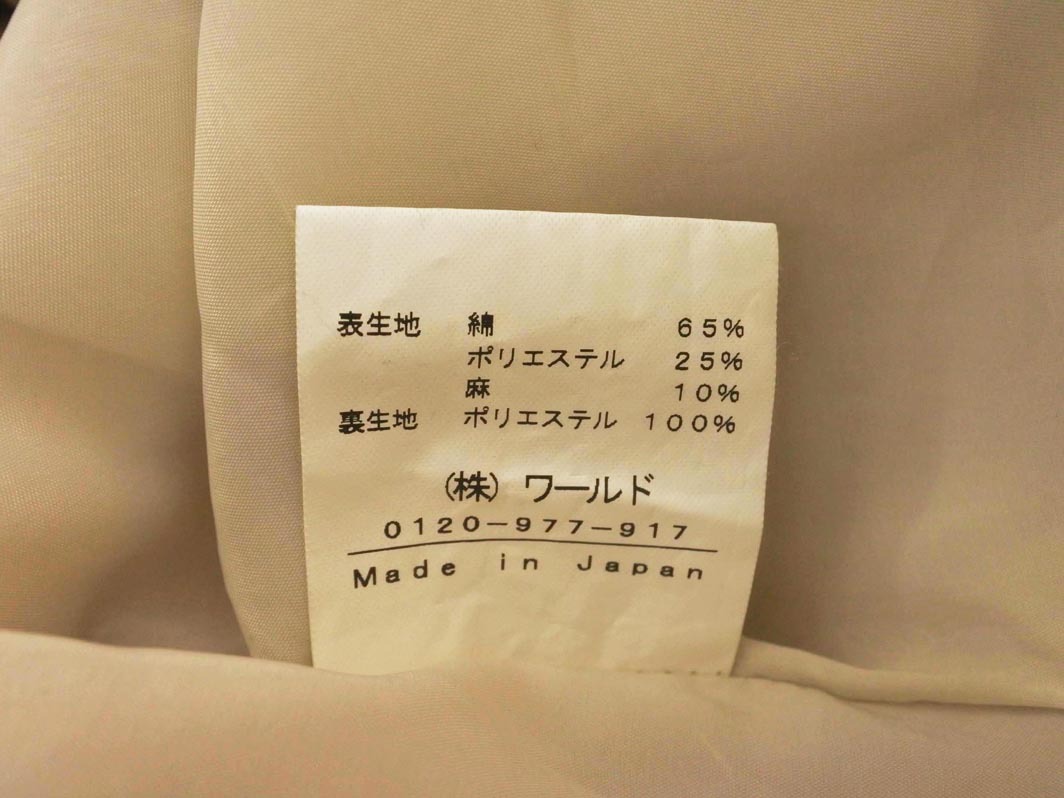 表生地 綿 65%
ポリエステル 25%
麻 10%
裏生地 ポリエステル 100%
(株) ワールド
0120-977-917
Made in Japan